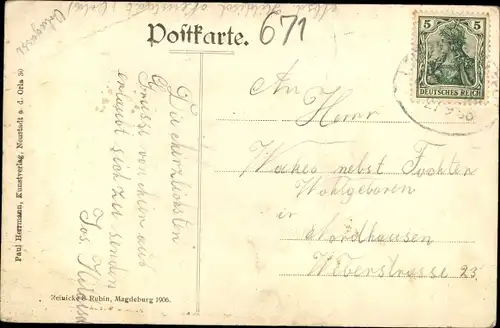 Postkarte. 671
5 5
DEUTSCHES REICH
An
Herrn
Wackes nebst Tochter
Wohlgeboren
in
Nordhausen
Weberstrasse 23.
Die herzlichsten
Grüsse von hier aus
erlaubt sich zu senden
Jos.
Paul Herrmann, Kunstverlag, Neustadt a. d. Orla 30
Reinicke & Rubin, Magdeburg 1906.